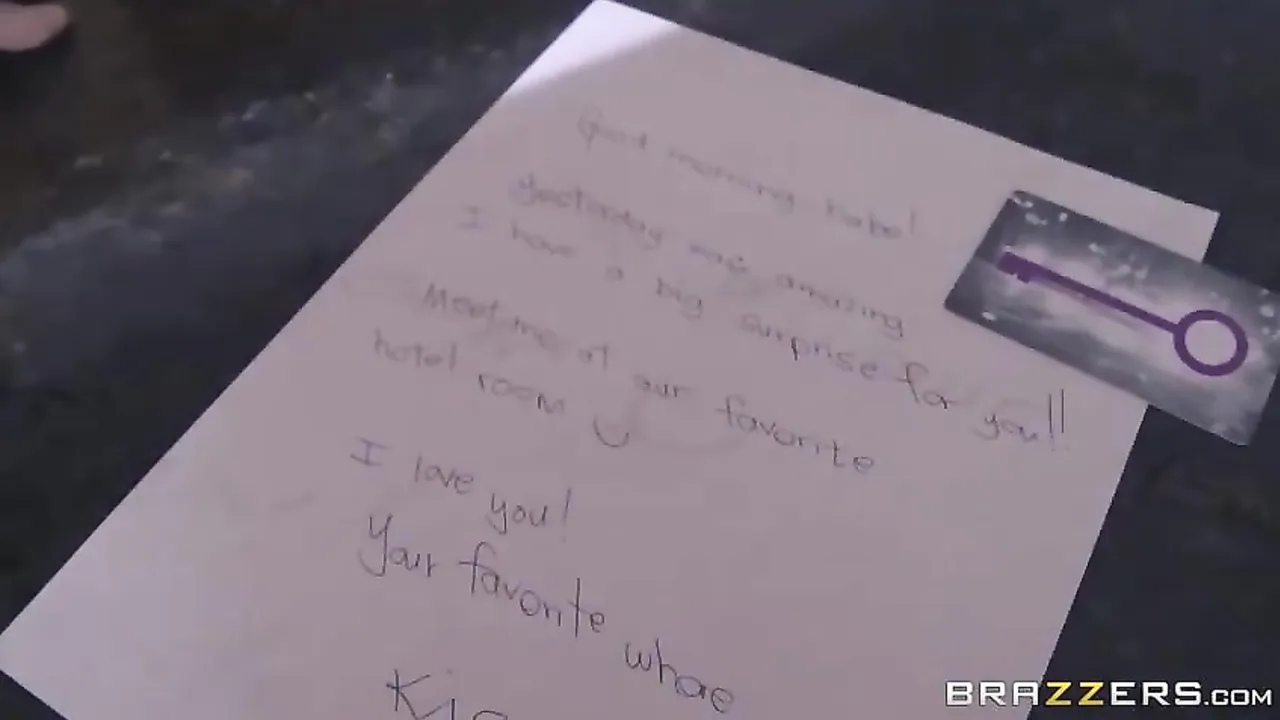 Good morning babe!
Yesterday was amazing
I have a big surprise for you!!
Meet me at our favorite
hotel room
I love you!
Your favorite whore
BRAZZERS.COM